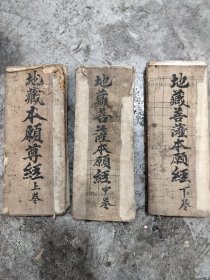 地藏本願尊經上卷
地藏菩薩本願經中卷
地藏菩薩本願經下卷